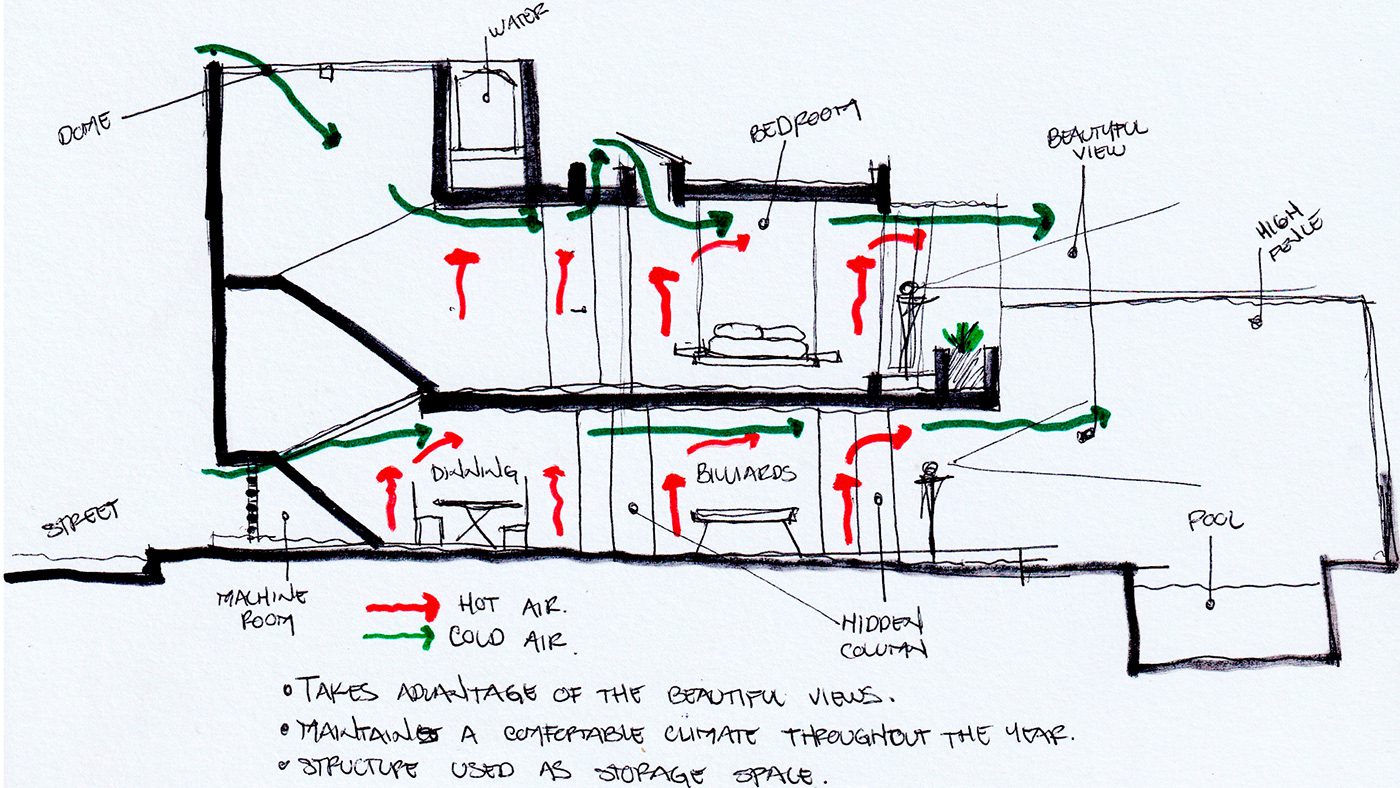 WATER
DOME
BEDROOM
BEAUTYFUL
VIEW
HIGH
FENCE
DINNING
BILLIARDS
STREET
POOL
MACHINE
ROOM
HOT AIR.
COLD AIR.
HIDDEN
COLUMN
TAKES ADVANTAGE OF THE BEAUTIFUL VIEWS.
MAINTAINS A COMFORTABLE CLIMATE THROUGHOUT THE YEAR.
STRUCTURE USED AS STORAGE SPACE.